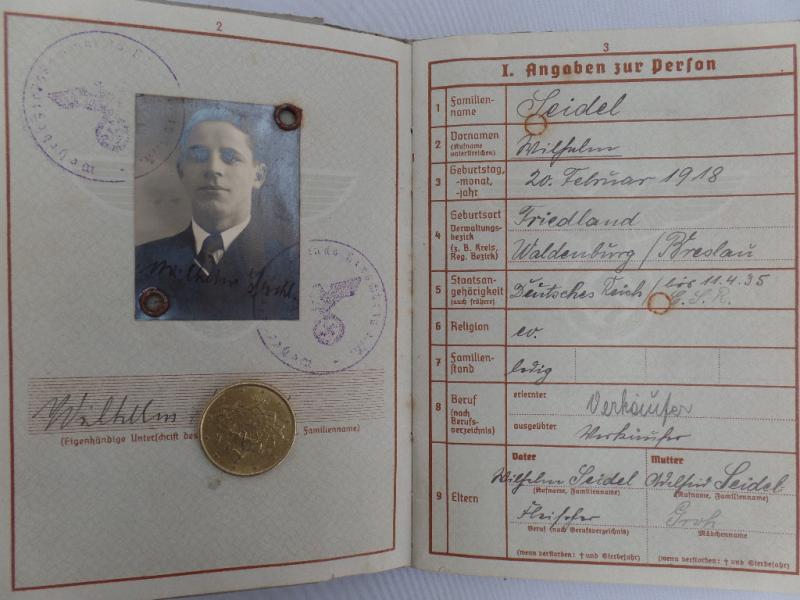 2
Wilhelm
(Eigenhändige Unterschrift des
Familienname)
3
I. Angaben zur Person
1 Familien-
name
Seidel
2 Vornamen
(Rufname
unterstreichen)
Wilhelm
3 Geburtstag,
-monat,
-jahr
20. Februar 1918
4 Geburtsort
Verwaltungs-
bezirk
(z. B. Kreis,
Reg. Bezirk)
Friedland
Waldenburg / Breslau
5 Staatsan-
gehörigkeit
(auch frühere)
Deutsches Reich / bis 11.4.35
6 Religion
ev.
7 Familien-
stand
ledig
8 Beruf
(nach
Berufs-
verzeichnis)
erlernter
Verkäufer
ausgeübter
Verkäufer
9 Eltern
Vater
Wilhelm Seidel
(Rufname, Familienname)
Fleischer
Beruf (nach Berufsverzeichnis)
(wenn verstorben: † und Sterbejahr)
Mutter
Seidel
(Rufname, Familienname)
Mädchenname
(wenn verstorben: † und Sterbejahr)